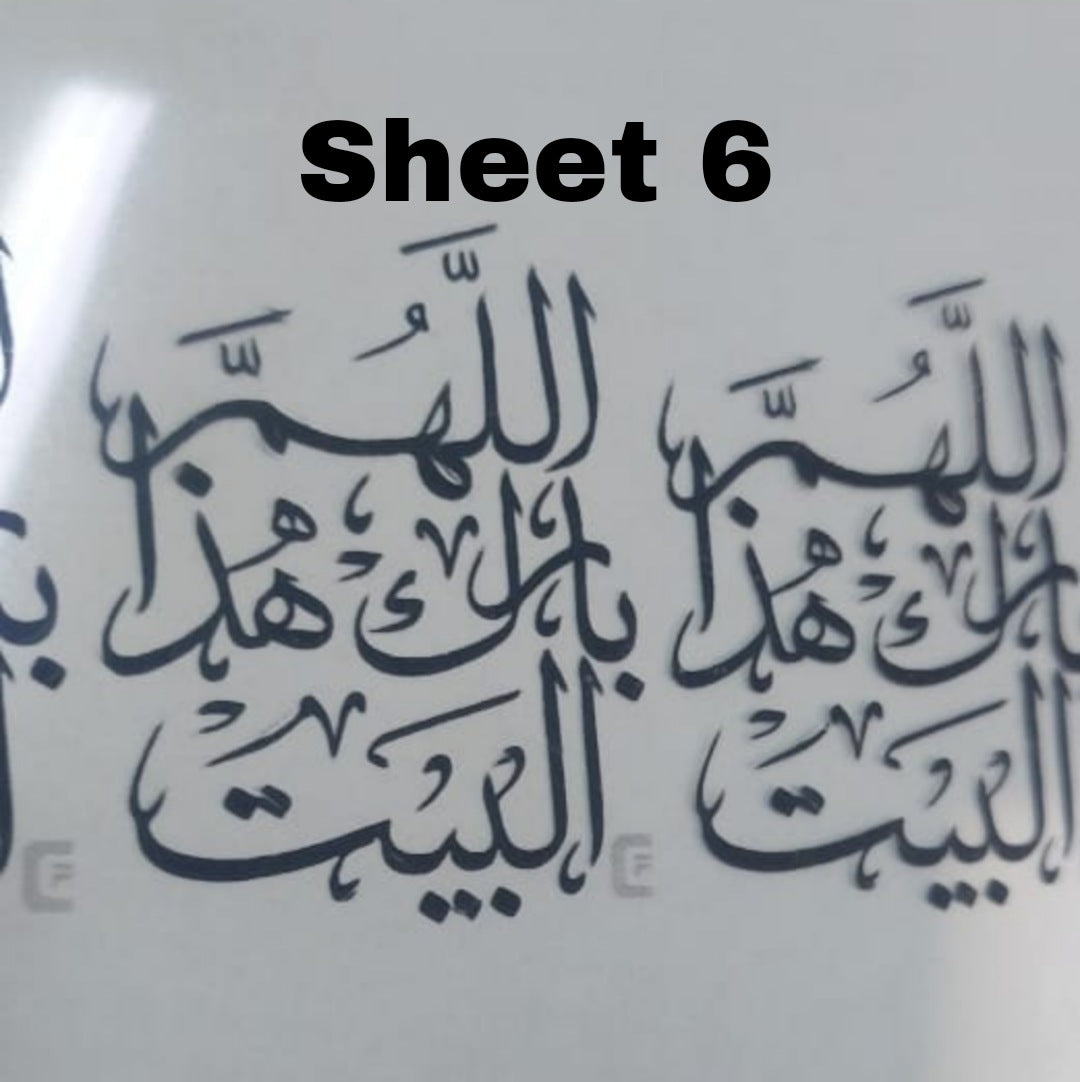 Sheet 6
اللَّهُمَّ
بارك هُذا
البيت
اللَّهُمَّ
بارك هُذا
البيت